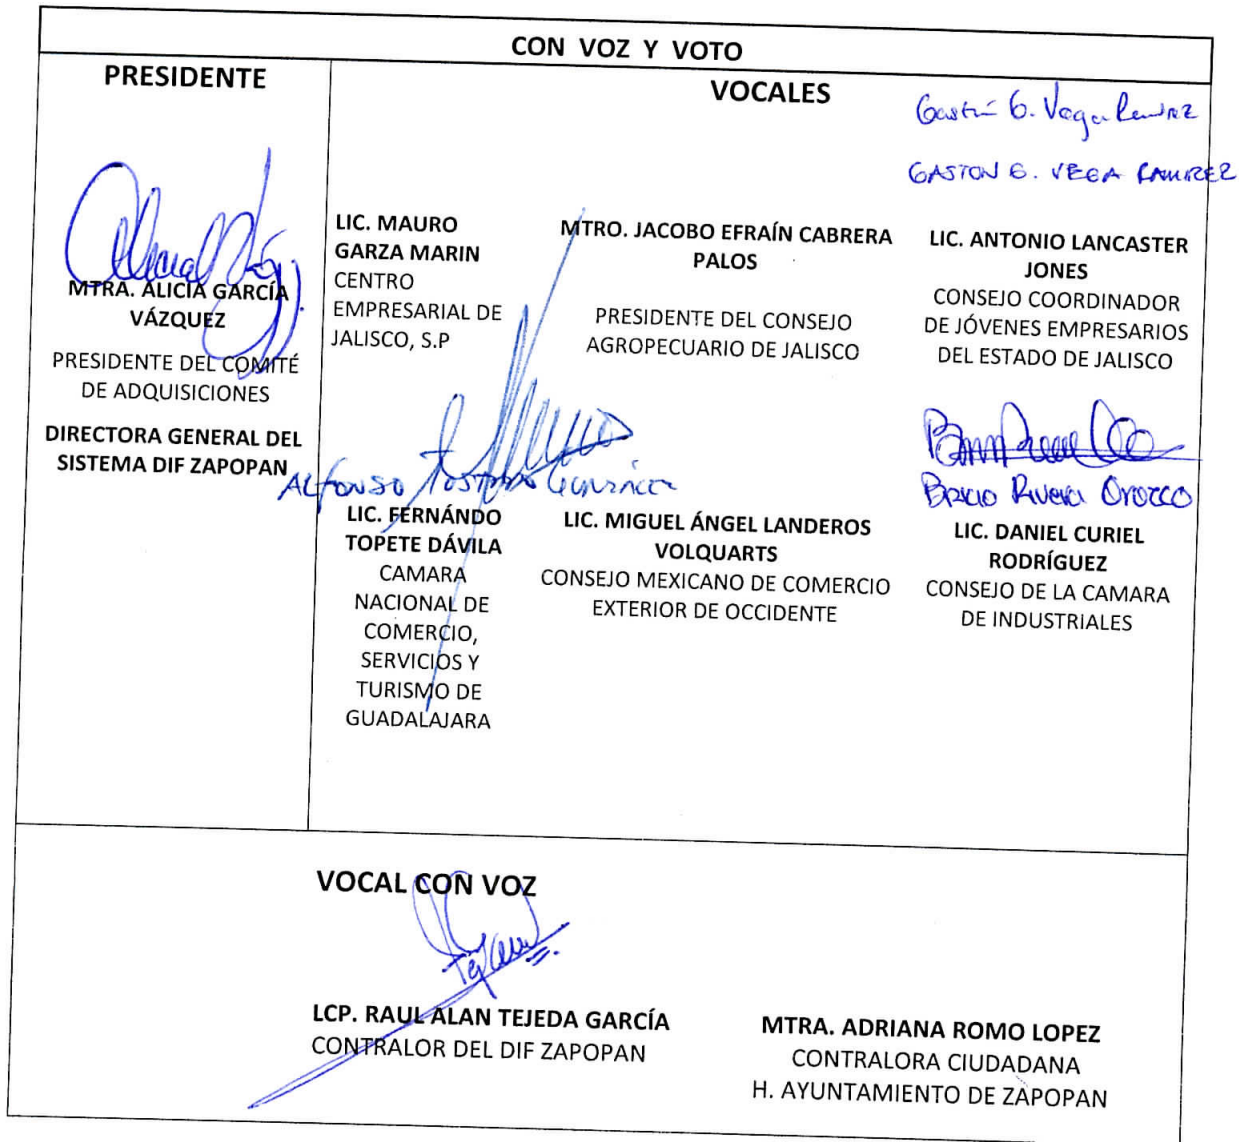 CON VOZ Y VOTO
PRESIDENTE
MTRA. ALICIA GARCÍA
VÁZQUEZ
PRESIDENTE DEL COMITÉ
DE ADQUISICIONES
DIRECTORA GENERAL DEL
SISTEMA DIF ZAPOPAN
VOCALES
LIC. MAURO
GARZA MARIN
CENTRO
EMPRESARIAL DE
JALISCO, S.P
MTRO. JACOBO EFRAÍN CABRERA
PALOS
PRESIDENTE DEL CONSEJO
AGROPECUARIO DE JALISCO
Gastón G. Vega Ramirez
GASTON G. VEGA RAMIREZ
LIC. ANTONIO LANCASTER
JONES
CONSEJO COORDINADOR
DE JÓVENES EMPRESARIOS
DEL ESTADO DE JALISCO
Alfonso
LIC. FERNÁNDO
TOPETE DÁVILA
CAMARA
NACIONAL DE
COMERCIO,
SERVICIOS Y
TURISMO DE
GUADALAJARA
LIC. MIGUEL ÁNGEL LANDEROS
VOLQUARTS
CONSEJO MEXICANO DE COMERCIO
EXTERIOR DE OCCIDENTE
Rivera Orozco
LIC. DANIEL CURIEL
RODRÍGUEZ
CONSEJO DE LA CAMARA
DE INDUSTRIALES
VOCAL CON VOZ
LCP. RAUL ALAN TEJEDA GARCÍA
CONTRALOR DEL DIF ZAPOPAN
MTRA. ADRIANA ROMO LOPEZ
CONTRALORA CIUDADANA
H. AYUNTAMIENTO DE ZAPOPAN